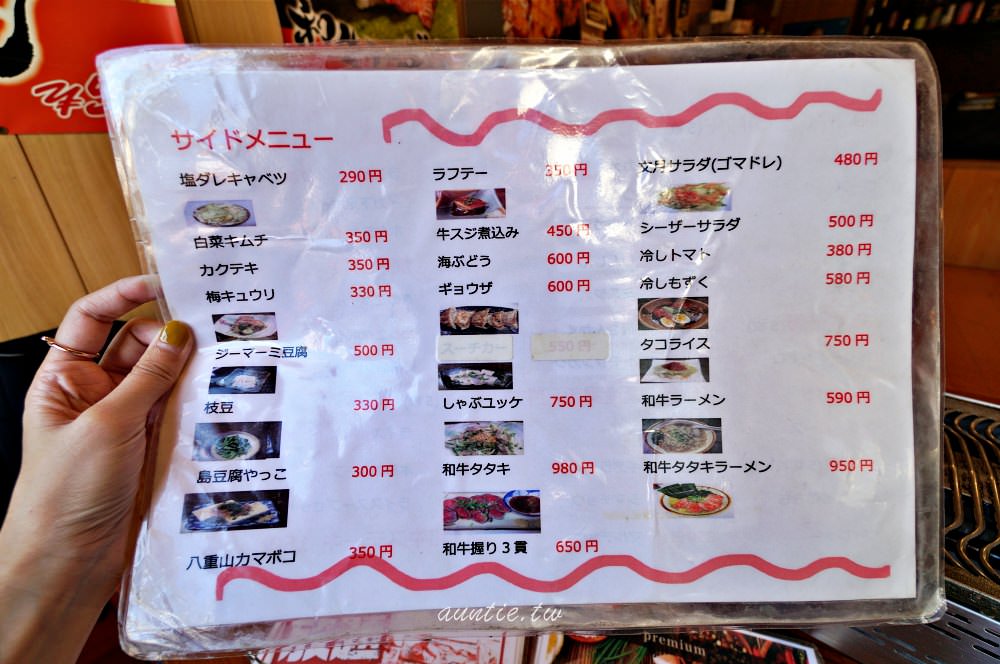 サイドメニュー
塩ダレキャベツ 290円
白菜キムチ 350円
カクテキ 350円
梅キュウリ 330円
ジーマーミ豆腐 500円
枝豆 330円
島豆腐やっこ 300円
八重山カマボコ 350円
ラフテー 350円
牛スジ煮込み 450円
海ぶどう 600円
ギョウザ 600円
スーチカー 550円
しゃぶユッケ 750円
和牛タタキ 980円
和牛握り3貫 650円
文月サラダ(ゴマドレ) 480円
シーザーサラダ 500円
冷しトマト 380円
冷しもずく 580円
タコライス 750円
和牛ラーメン 590円
和牛タタキラーメン 950円
auntie.tw
premium